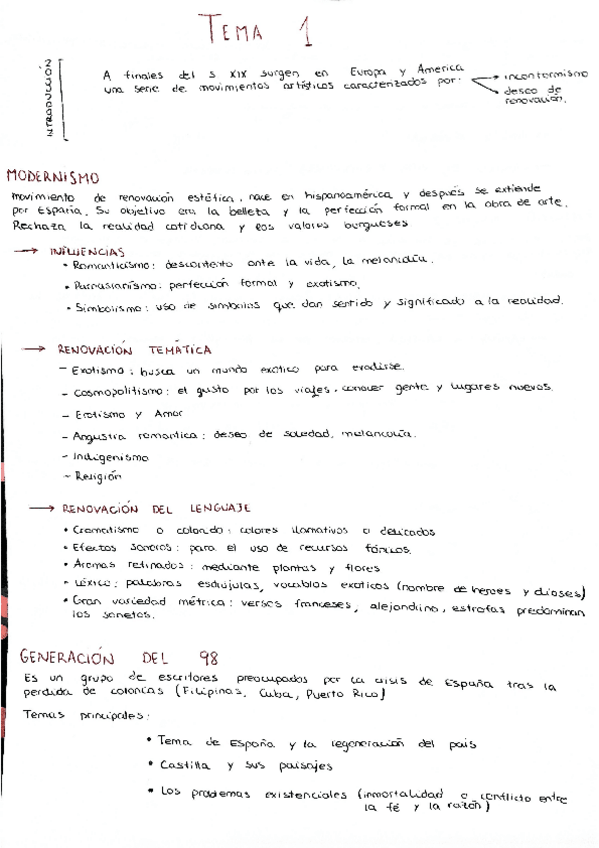 TEMA 1
INTRODUCCION
A finales del s XIX surgen en Europa y America
una serie de movimientos artísticos caracterizados por: → inconformismo
→ deseo de
renovación.
MODERNISMO
movimiento de renovación estética, nace en hispanoamérica y después se extiende
por España. Su objetivo era la belleza y la perfección formal en la obra de arte.
Rechaza la realidad cotidiana y los valores burgueses
→ INFLUENCIAS
• Romanticismo: descontento ante la vida, la melancolía.
• Parnasianismo: perfección formal y exotismo.
• Simbolismo: uso de simbolos que dan sentido y significado a la realidad.
→ RENOVACIÓN TEMÁTICA
- Exotismo: busca un mundo exótico para evadirse.
- Cosmopolitismo: el gusto por los viajes, conocer gente y lugares nuevos.
- Erotismo y Amor
- Angustia romantica: deseo de soledad, melancolía.
- Indigenismo
- Religión
→ RENOVACIÓN DEL LENGUAJE
• Cromatismo o colorido: colores llamativos o delicados
• Efectos sonoros: para el uso de recursos fónicos.
• Aromas refinados: mediante plantas y flores
• Léxico: palabras esdrújulas, vocablos exoticos (nombre de heroes y dioses)
• Gran variedad métrica: versos franceses, alejandrino, estrofas predominan
los sonetos.
GENERACIÓN DEL 98
Es un grupo de escritores preocupados por la crisis de España tras la
perdida de colonias (Filipinas, Cuba, Puerto Rico)
Temas principales:
• Tema de España y la regeneración del pais
• Castilla y sus paisajes
• Los problemas existenciales (inmortalidad o conflicto entre
la fé y la razón)